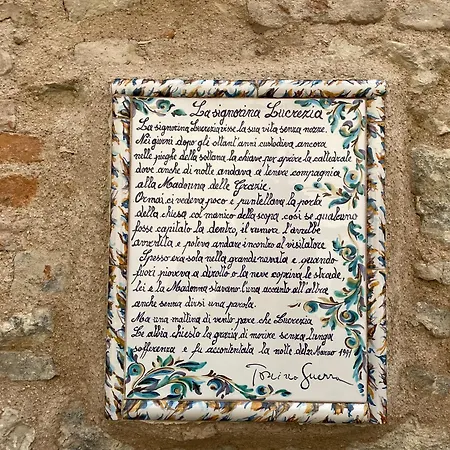 La signorina Lucrezia
La signorina Lucrezia visse la sua vita senza nozze.
Nei giorni dopo gli ottant'anni custodiva ancora
nelle pieghe della sottana la chiave per aprire la cattedrale
dove anche di notte andava a tenere compagnia
alla Madonna delle Grazie.
Ormai ci vedeva poco e puntellava la porta
della chiesa col manico della scopa, così se qualcuno
fosse capitato là dentro, il rumore l'avrebbe
avvertita e poteva andare incontro al visitatore
Spesso era sola nella grande navata e quando
fuori pioveva a dirotto o la neve copriva le strade
lei e la Madonna stavano l'una accanto all'altra
anche senza dirsi una parola.
Ma una mattina di vento pare che Lucrezia
Le abbia chiesto la grazia di morire senza lunga
sofferenza e fu accontentata la notte del Marzo 1971
Tonino Guerra